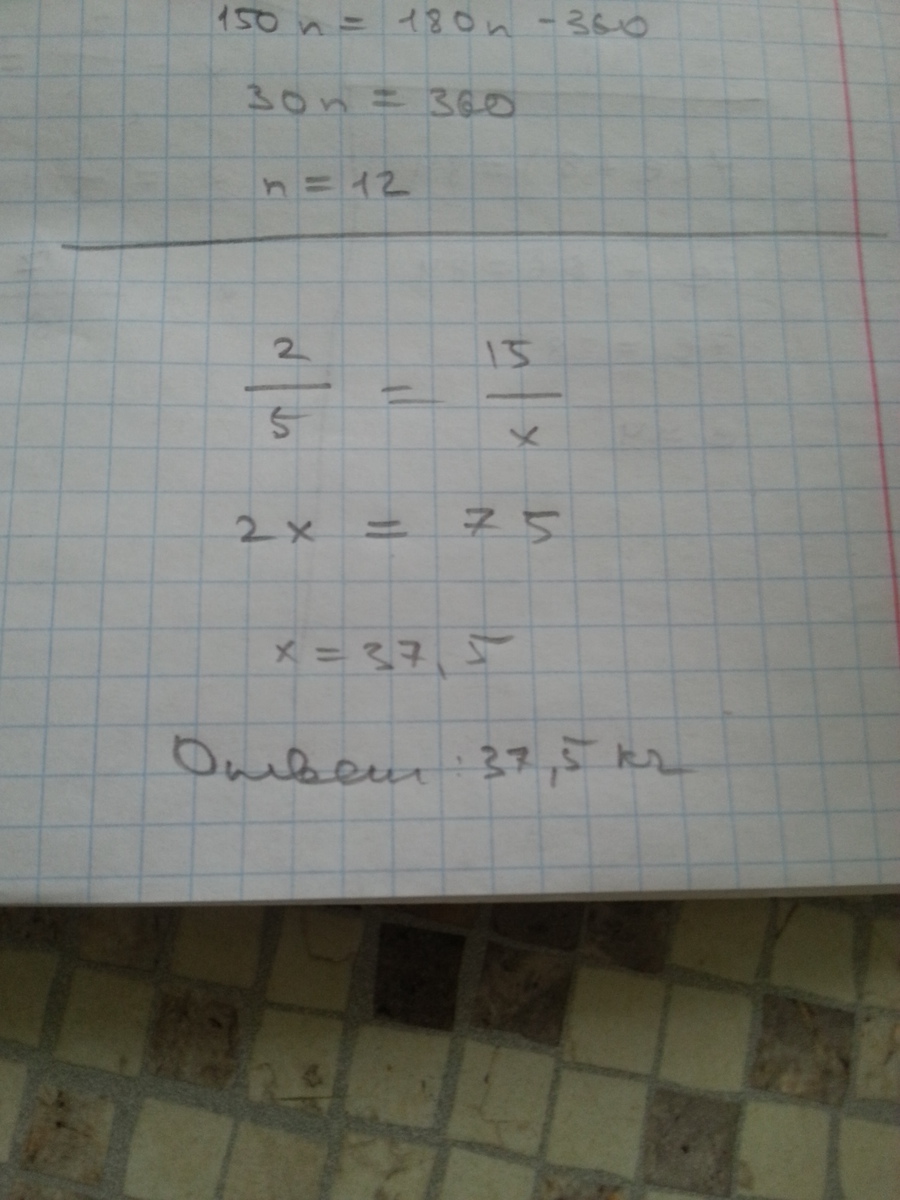 150n = 180n - 360
30n = 360
n = 12
2/5 = 15/x
2x = 75
x = 37,5
Ответ: 37,5 кг